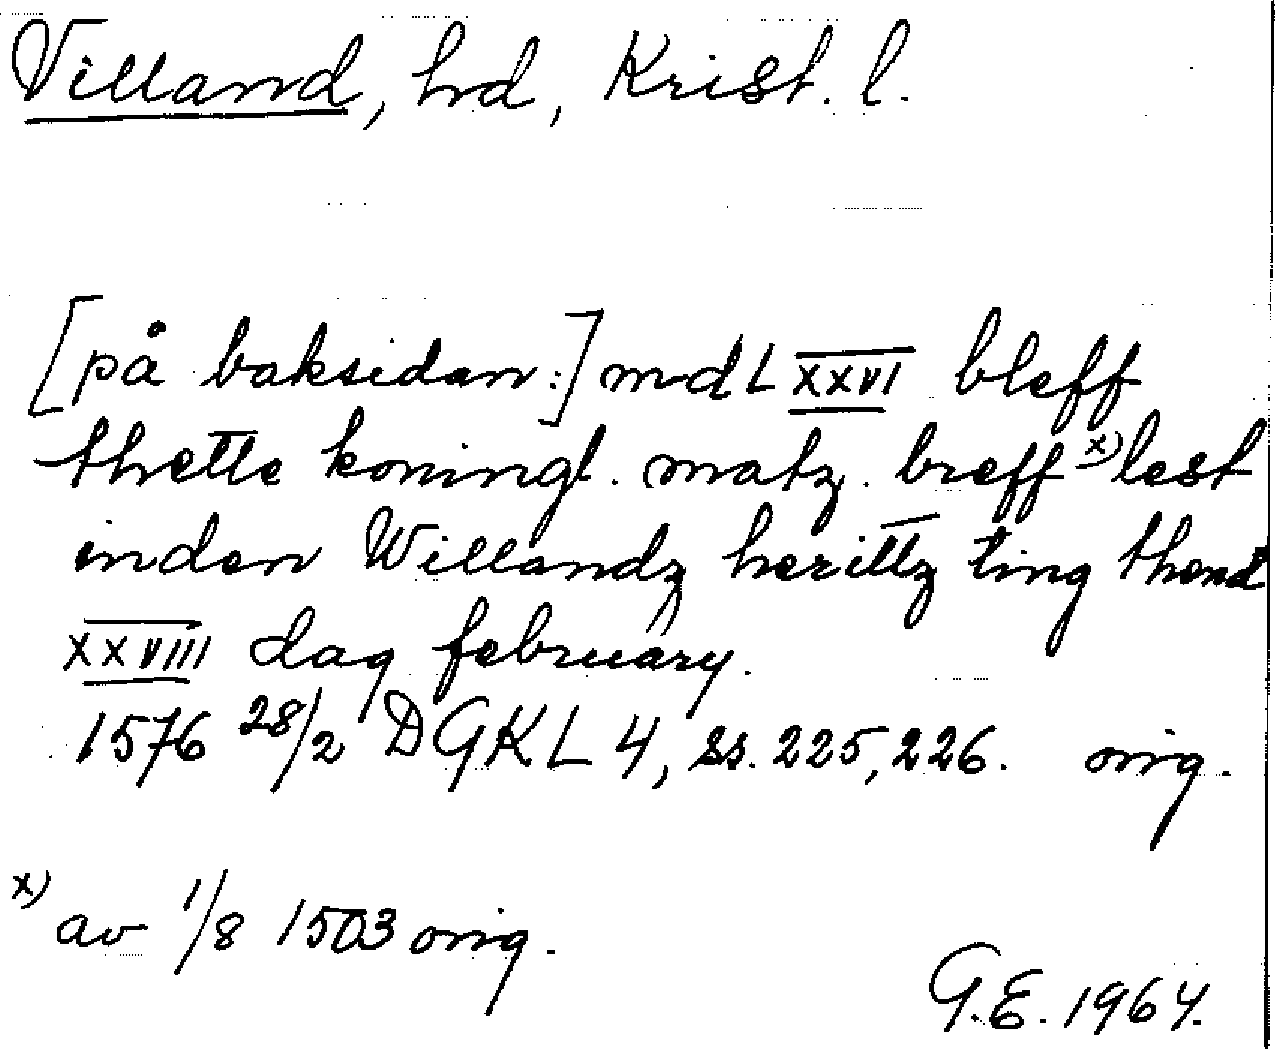 Villand, hd, Krist. l.
[på baksidan:] mdL XXVI bleff
thette koningl. matz. breff x) lest
inden Willandz herittz ting thend
XXVIII dag february.
1576 28/2 DGKL 4, ss. 225, 226. orig.
x) av 1/8 1503 orig.
G.E. 1964.